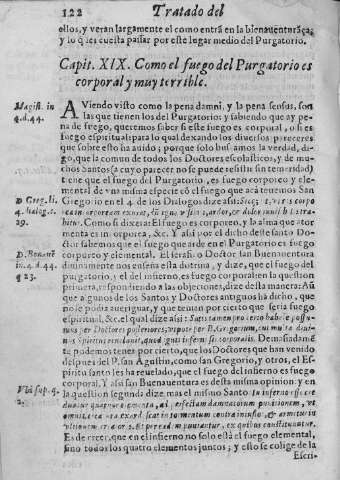 122 Tratado del
ellos, y veran largamente el como entrã en la bienauenturãça;
y lo q̃ les cuesta passar por este lugar medio del Purgatorio.
Capit. XIX. Como el fuego del Purgatorio es
corporal y muy terrible.
Magist. in
4.d.44.
AViendo visto como la pena damni, y la pena sensus, son
las que tienen los del Purgatorio: y sabiendo que ay pe-
na de fuego, queremos saber si este fuego es corporal, o si es
fuego espiritual: para lo qual dexando los diversos pareceres
que sobre esto ha auido; porque solo buscamos la verdad, di-
go, que la comun de todos los Doctores escolasticos, y de mu-
chos Santos (a cuyo parecer no se puede resistir sin temeridad)
tiene que el fuego del Purgatorio, es fuego corporeo y ele-
mental de vna misma especie cõ el fuego que acà tenemos San
D Greg. li.
4. dialog. c.
29.
Gregorio en el 4. de los Dialogos dize assi:
Como si dixera: El fuego es corporeo, y la alma que ator
menta es incorporea, &c. Y assi por el dicho deste santo Do
ctor sabemos que el fuego que arde en el Purgatorio es fuego
corporeo y elemental. El serafico Doctor san Buenauentura
D. Bonauẽ
in.4.d.44.
q 23.
diuinamente nos enseña esta dotrina, y dize, que el fuego del
purgatorio, y el del infierno, es fuego corporal: en la question
primera, respondiendo a las objeciones, dize desta manera: Aũ
que algunos de los Santos y Doctores antiguos ha dicho, que
no se podia aueriguar, y que tenian por cierto que seria fuego
espiritual, &c. el qual dize assi:
per Doctores posteriores, vtpote per D. Gregorium, cui multa diui-
nus spiritus reuelauit, quod ignis inferni sit corporalis. Demas de aqueste
podemos tener por cierto, que los Doctores que han venido
despues del P. san Agustin, como san Gregorio, y otros, el Es-
piritu santo les ha reuelado, que el fuego del infierno es fuego
corporal, Y assi san Buenauentura es desta misma opinion: y en
Vbi sup. q.
la question segunda dize mas el mismo Santo In inferno
Es de creer, que en el infierno no solo està el fuego elemental,
sino todos los quatro elementos juntos; y esto se colige de la
Escri-